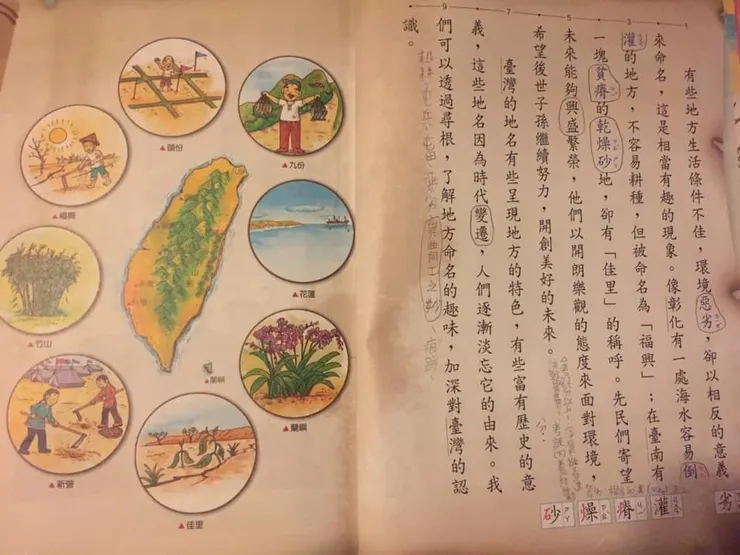 有些地方生活條件不佳，環境惡劣，卻以相反的意義
來命名，這是相當有趣的現象。像彰化有一處海水容易倒
灌的地方，不容易耕種，但被命名為「福興」；在臺南有
一塊貧瘠的乾燥砂地，卻有「佳里」的稱呼。先民們寄望
未來能夠興盛繁榮，他們以開朗樂觀的態度來面對環境，
希望後世子孫繼續努力，開創美好的未來。
臺灣的地名有些呈現地方的特色，有些富有歷史的意
義，這些地名因為時代變遷，人們逐漸淡忘它的由來。我
們可以透過尋根，了解地方命名的趣味，加深對臺灣的認
識。
1
3
5
7
9
劣
灌
瘠
燥
砂
頭份
九份
福興
花蓮
竹山
蘭嶼
蘭嶼
新營
佳里